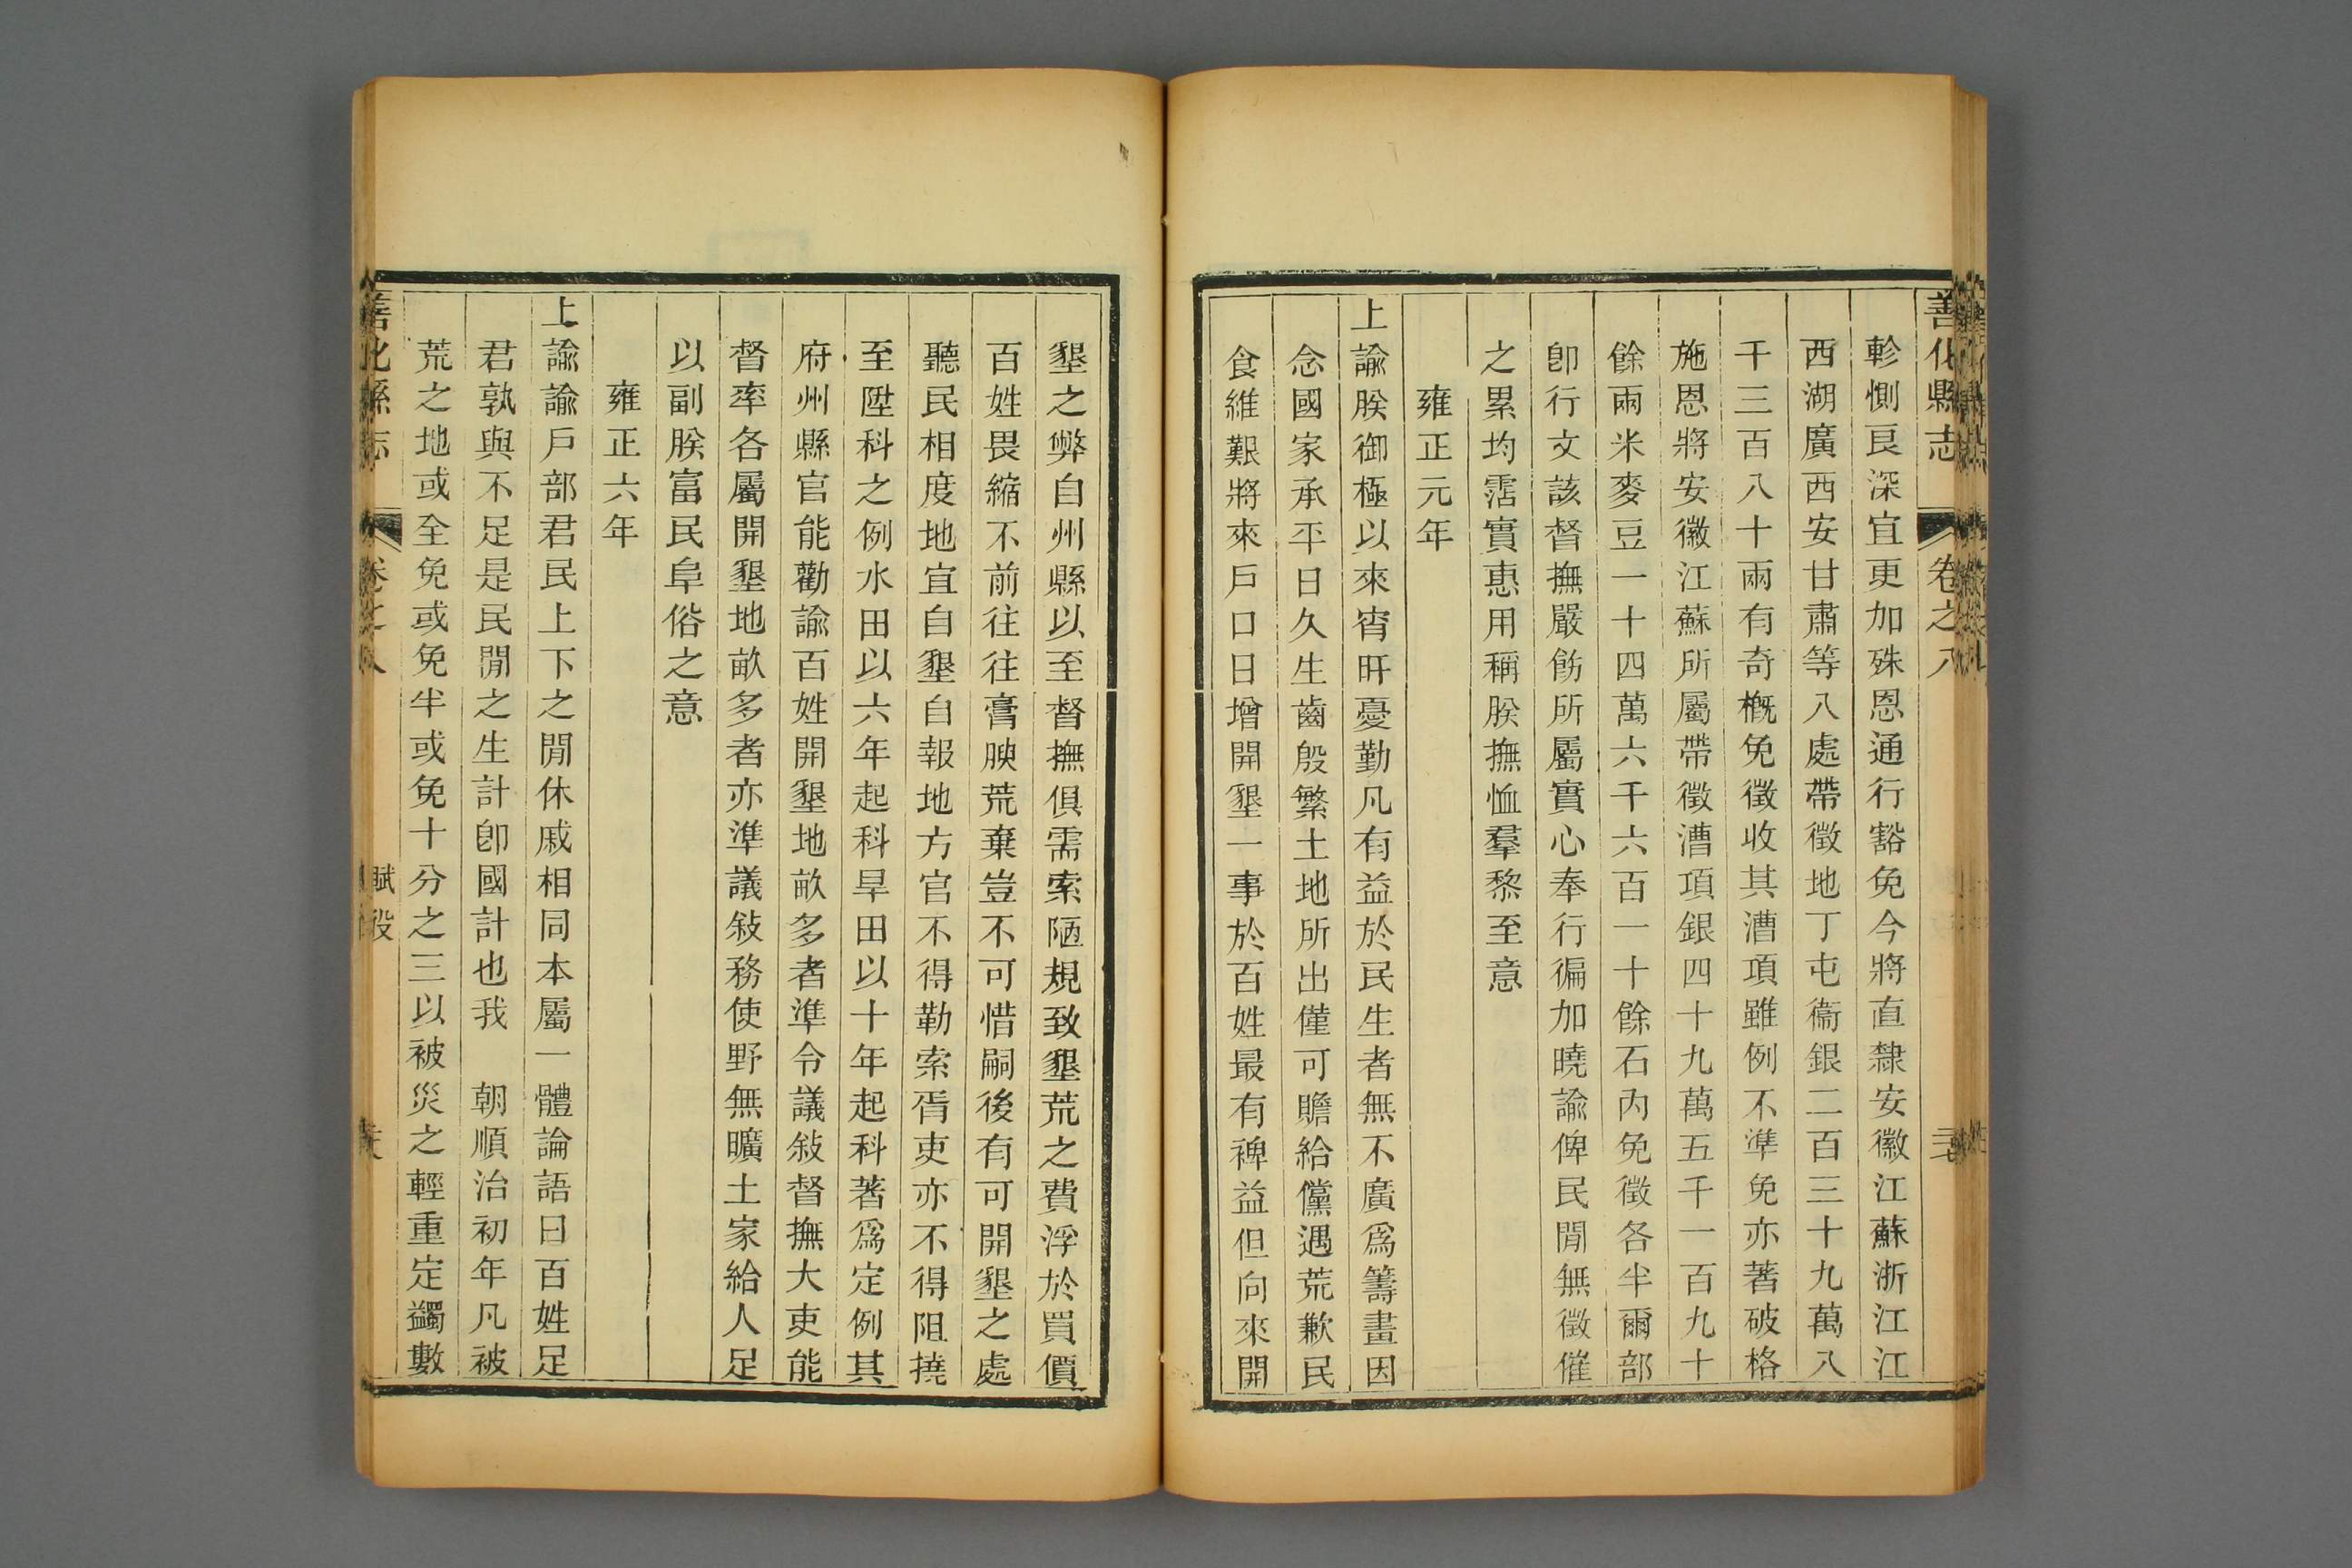 善化縣志 卷之八
軫惻良深宜更加殊恩通行豁免今將直隸安徽江蘇浙江江
西湖廣西安甘肅等八處帶徵地丁屯衞銀二百三十九萬八
千三百八十兩有奇槪免徵收其漕項雖例不準免亦著破格
施恩將安徽江蘇所屬帶徵漕項銀四十九萬五千一百九十
餘兩米麥豆一十四萬六千六百一十餘石內免徵各半爾部
卽行文該督撫嚴飭所屬實心奉行徧加曉諭俾民閒無徵催
之累均霑實惠用稱朕撫恤羣黎至意
雍正元年
上諭朕御極以來宵旰憂勤凡有益於民生者無不廣爲籌畫因
念國家承平日久生齒殷繁土地所出僅可贍給儻遇荒歉民
食維艱將來戶口日增開墾一事於百姓最有裨益但向來開
墾之弊自州縣以至督撫俱需索陋規致墾荒之費浮於買價
百姓畏縮不前往往膏腴荒棄豈不可惜嗣後有可開墾之處
聽民相度地宜自墾自報地方官不得勒索胥吏亦不得阻撓
至陞科之例水田以六年起科旱田以十年起科著爲定例其
府州縣官能勸諭百姓開墾地畝多者準令議敍督撫大吏能
督率各屬開墾地畝多者亦準議敍務使野無曠土家給人足
以副朕富民阜俗之意
雍正六年
上諭諭戶部君民上下之閒休戚相同本屬一體論語曰百姓足
君孰與不足是民閒之生計卽國計也我 朝順治初年凡被
荒之地或全免或免半或免十分之三以被災之輕重定蠲數
善化縣志 卷之八 賦役